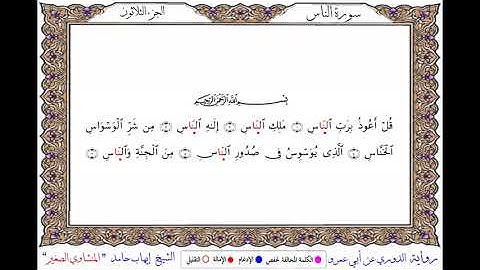 سورة الناس
الجزء الثلاثون
بسم الله الرحمن الرحيم
قُلْ أَعُوذُ بِرَبِّ النَّاسِ ۝ مَلِكِ النَّاسِ ۝ إِلَٰهِ النَّاسِ ۝ مِن شَرِّ الْوَسْوَاسِ
الْخَنَّاسِ ۝ الَّذِي يُوَسْوِسُ فِي صُدُورِ النَّاسِ ۝ مِنَ الْجِنَّةِ وَالنَّاسِ ۝
رواية الدوري عن أبي عمرو
الكلمة المخالفة لحفص الإدغام الإمالة التقليل
الشيخ إيهاب حامد "المنشاوي الصغير"